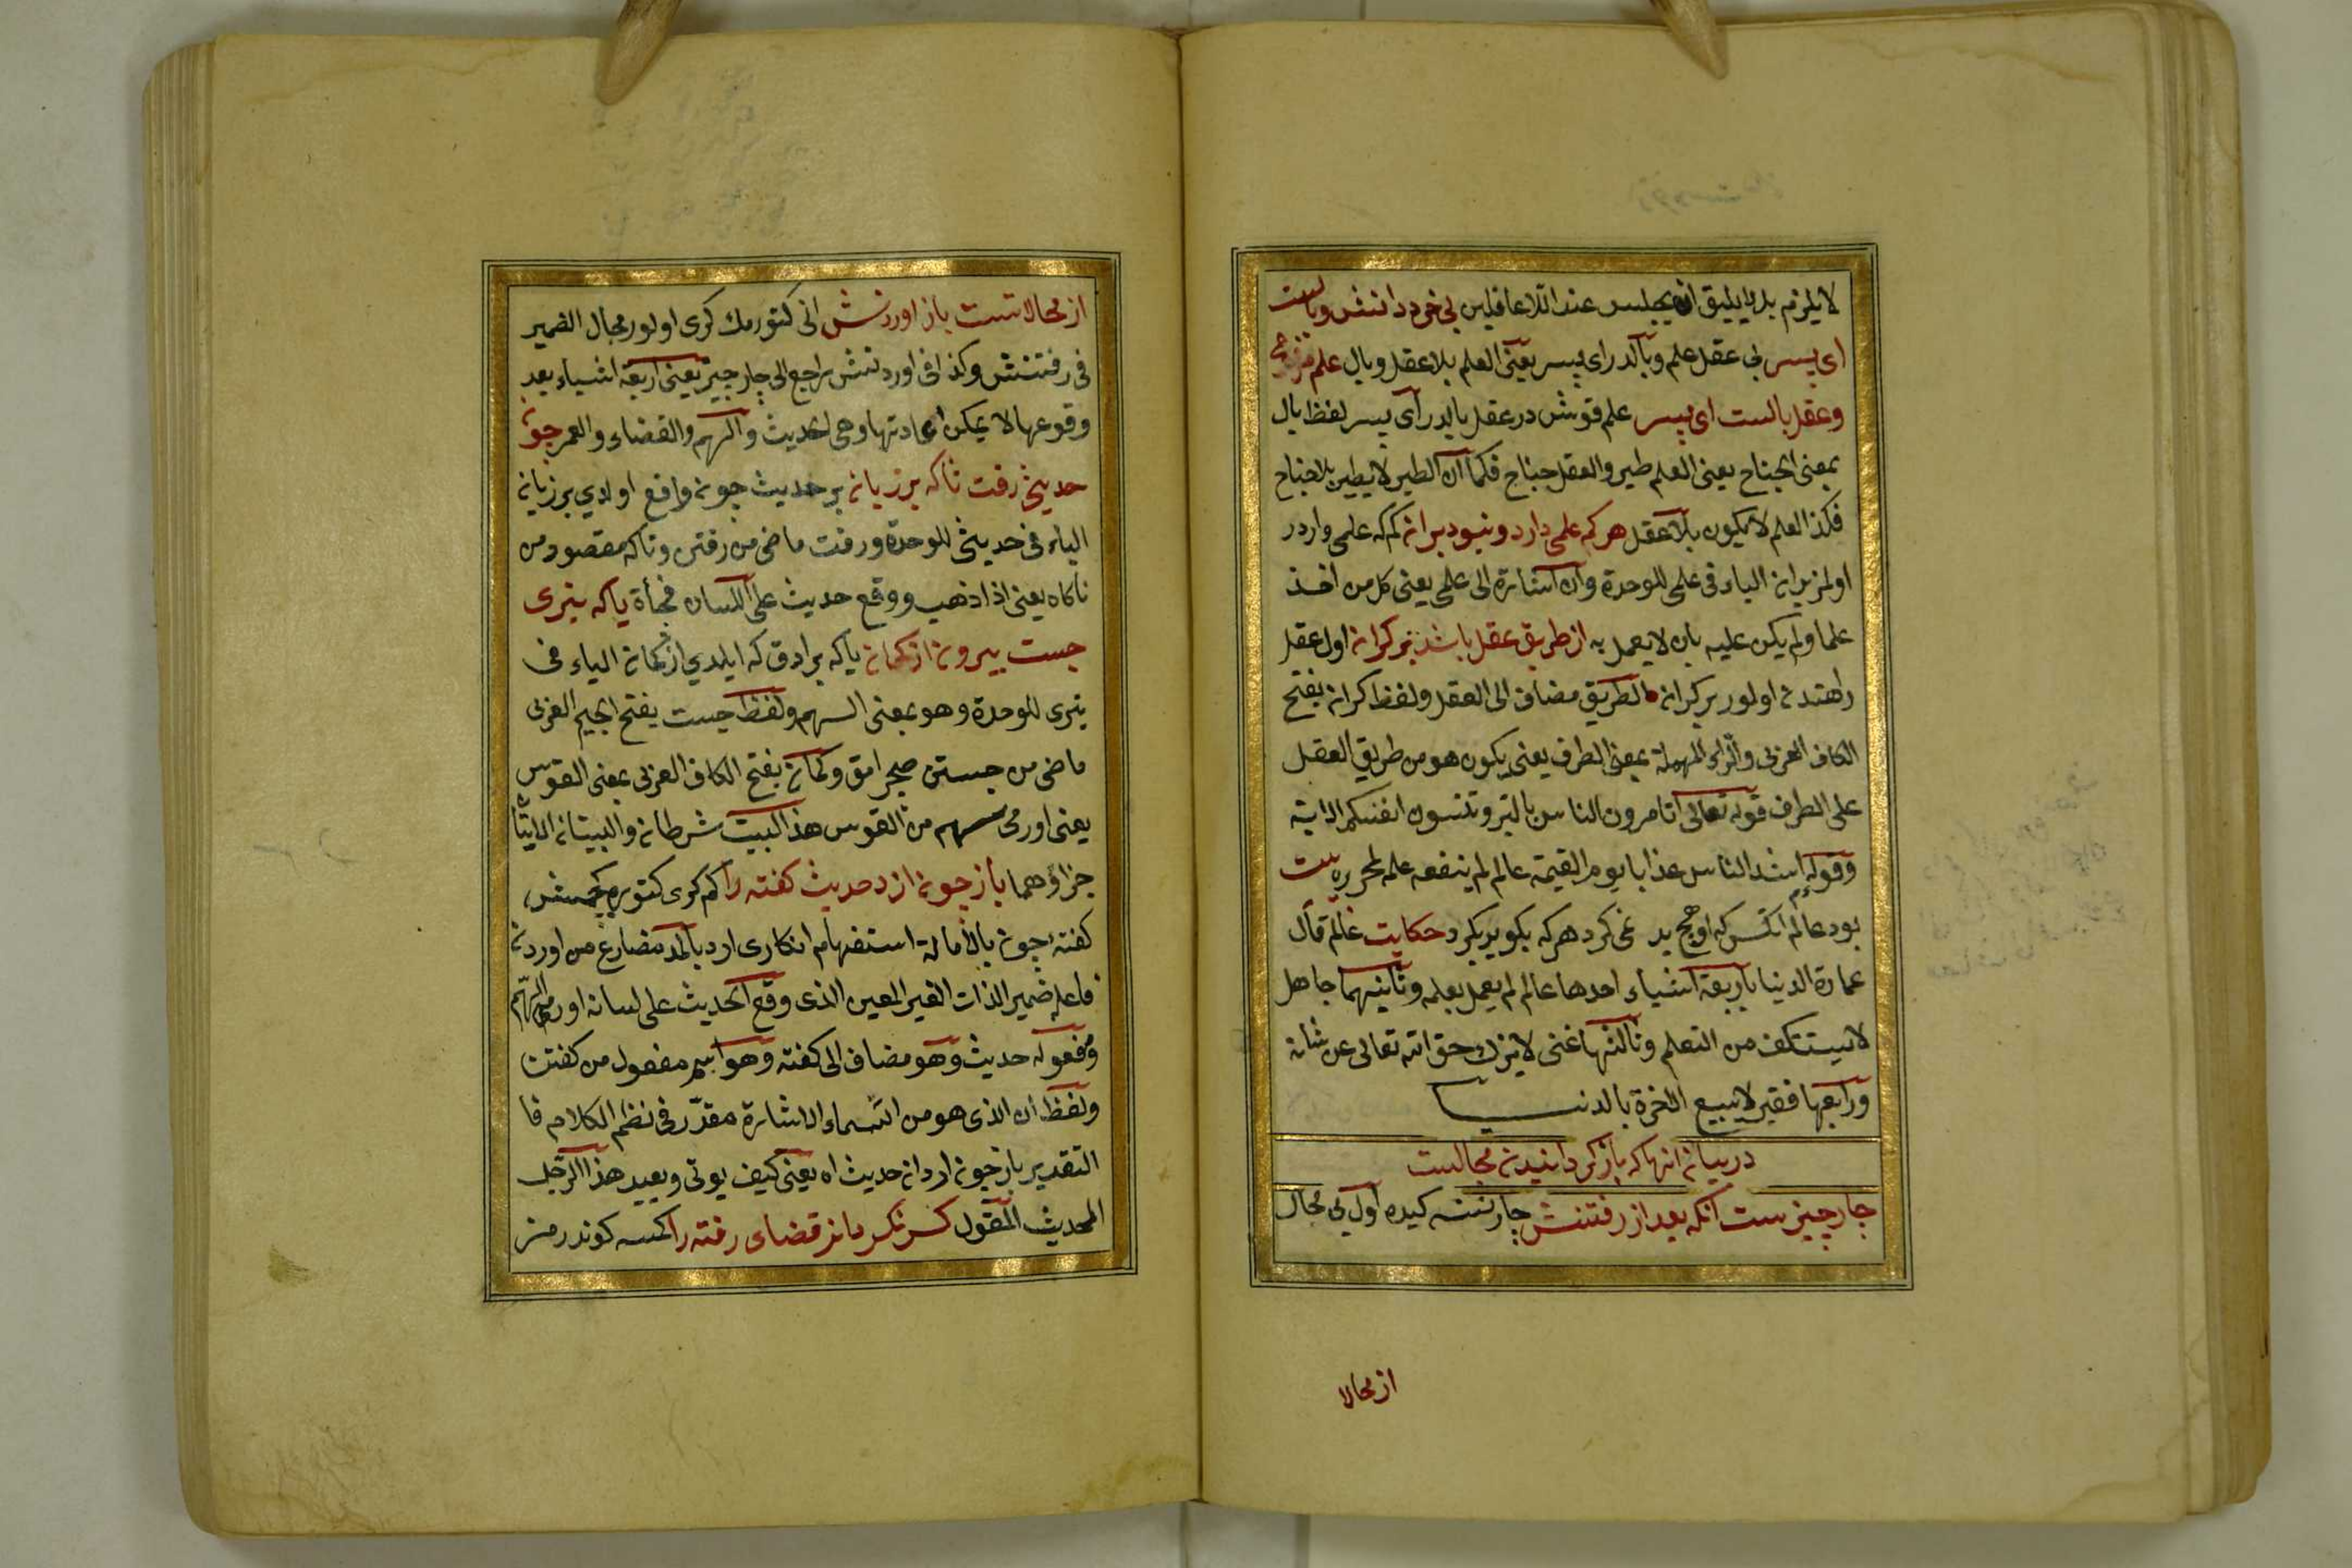 لا يلزم بل لا يليق ان يجلس عند اللاعاقلين بى خرد دانش وبالست
اى پسر بى عقل علم وبالدر اى پسر يعنى العلم بلا عقل وبال علم مرغ
وعقل بالست اى پسر علم قوش در عقل بالدر اى پسر لفظ بال
بمعنى الجناح يعنى العلم طير والعقل جناح فكما ان الطير لا يطير بلا جناح
فكذا العلم لا يكون بلا عقل هركه علمى دارد ونبود بر ان كم كه علمى واردر
اولمز بر ان الياء فى علمى للوحدة وان اشارة الى علمى يعنى كل من اخذ
علما ولم يكن عليه بان لا يعمل به از طريق عقل باشد بر كران اول عقل
راهندن اولور بر كران الطريق مضاف الى العقل ولفظ كران بفتح
الكاف العربى والراء المهملة بمعنى الطرف يعنى يكون هو من طريق العقل
على الطرف قوله تعالى اتامرون الناس بالبر وتنسون انفسكم الاية
وقوله اشد الناس عذابا يوم القيمة عالم لم ينفعه علمه لمحرره بيت
بود عالم انكس كه او هيچ بد نمى كرد هركه بكويد بكرد حكايت عالم قال
عمارة الدنيا باربعة اشياء احدها عالم لم يعمل بعلمه وثانيهما جاهل
لا يستنكف من التعلم وثالثها غنى لا يترك حق الله تعالى عن شانه
ورابعها فقير لا يبيع الاخرة بالدنيا
در بيان انها كه باز كردانيدن محالست
چار چيزست انكه بعد از رفتنش چار نسنه كيده اول بى مجال
از محالا
از محالاتست باز اوردنش انى كتورمك كرى اولور محال الضمير
فى رفتنش وكذا فى اوردنش راجع الى چار چيز يعنى اربعة اشياء بعد
وقوعها لا يمكن اعادتها وهى الحديث والسهم والقضاء والعمر چون
حديثى رفت ناكه بر زبان بر حديث چون واقع اولدى بر زبان
الياء فى حديثى للوحدة ورفت ماضى من رفتن وناكه مقصور من
ناكاه يعنى اذا ذهب ووقع حديث على اللسان فجأة يا كه تيرى
جست بيرون از كمان يا كه بر اوق كه ايلدى از كمان الياء فى
تيرى للوحدة وهو بمعنى السهم ولفظ جست بفتح الجيم العربى
ماضى من جستن صچرامق وكمان بفتح الكاف العربى بمعنى القوس
يعنى او رمى سهم من القوس هذا البيت شرطان والبيتان الاتيان
جزاؤهما باز چون ارد حديث كفته را كم كرى كتوره كمسنه
كفته چون بالامالة استفهام انكارى ارد بالمد مضارع من اوردن
فاعله ضمير الذات الغير المعين الذى وقع الحديث على لسانه او رمى السهم
ومفعوله حديث وهو مضاف الى كفته وهو اسم مفعول من كفتن
ولفظ ان الذى هو من اسماء الاشارة مقدر فى نظم الكلام فا
التقدير باز چون ارد ان حديث اه يعنى كيف يوتى ويعيد هذا الرجل
الحديث المقول كس نكرداند قضاى رفته را كمسه كوندرمز